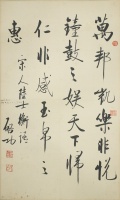 萬邦凱樂非悅
鐘鼓之娛天下歸
仁非感玉帛之
惠
宋人陸士衡語
啟功